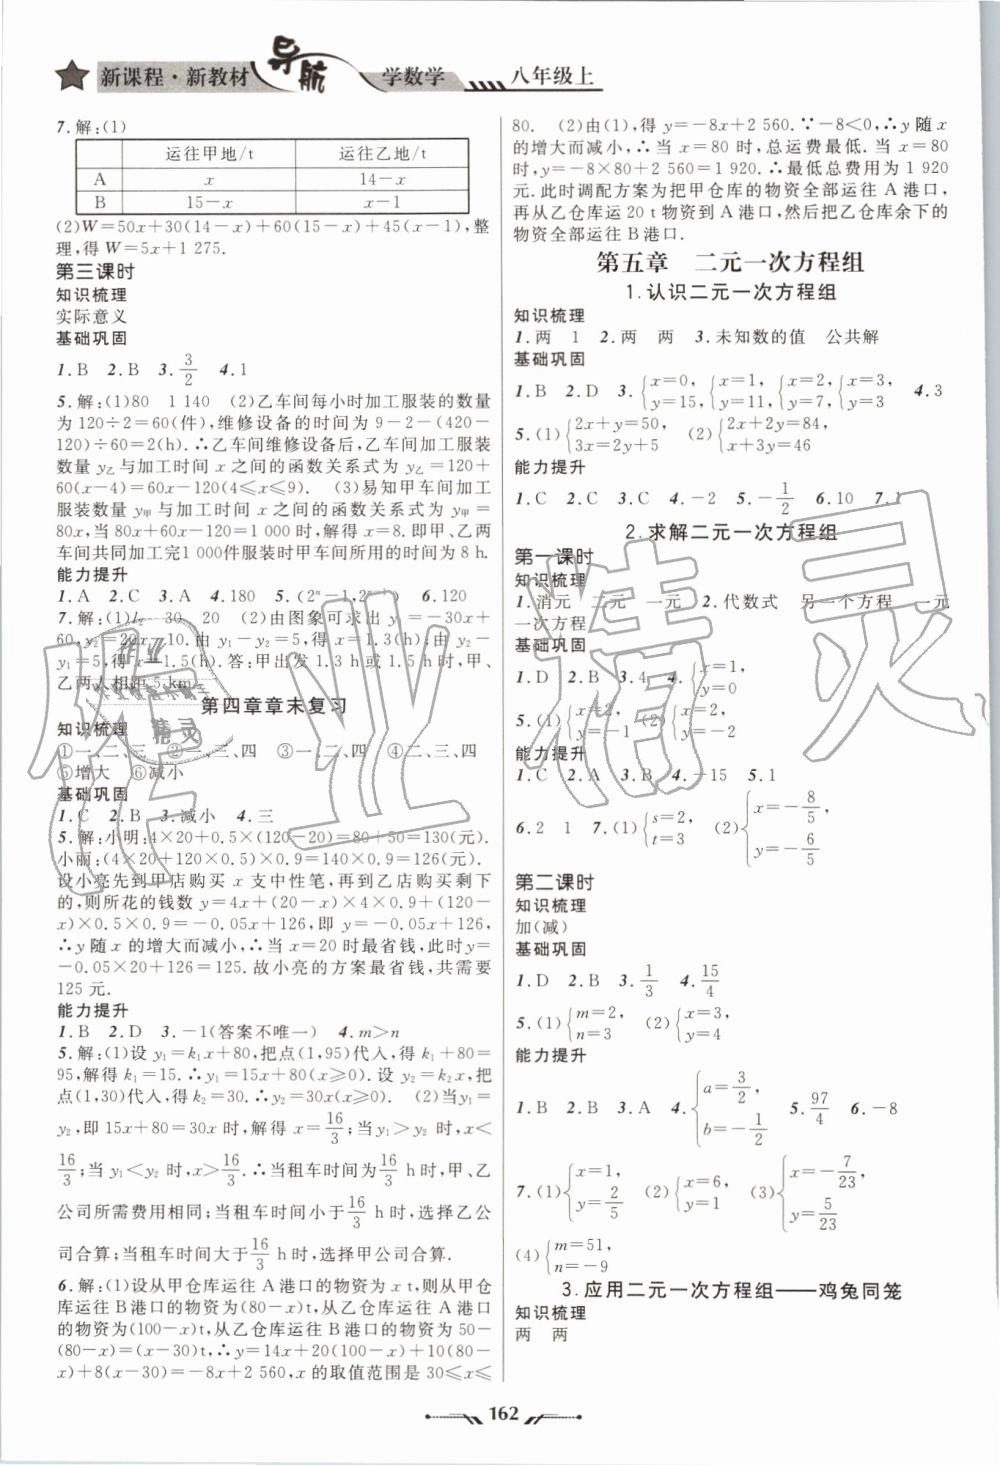 新课程·新教材 导航 学数学 八年级上
7.解:(1)
运往甲地/t 运往乙地/t
A x 14-x
B 15-x x-1
(2)W=50x+30(14-x)+60(15-x)+45(x-1),整
理,得 W=5x+1 275.
第三课时
知识梳理
实际意义
基础巩固
1.B 2.B 3.3/2 4.1
5.解:(1)80 1 140 (2)乙车间每小时加工服装的数量
为 120÷2=60(件),维修设备的时间为 9-2-(420-
120)÷60=2(h).∴乙车间维修设备后,乙车间加工服装
数量 y乙与加工时间 x 之间的函数关系式为 y乙=120+
60(x-4)=60x-120(4≤x≤9). (3)易知甲车间加工
服装数量 y甲与加工时间 x 之间的函数关系式为 y甲=
80x,当 80x+60x-120=1 000 时,解得 x=8.即甲、乙两
车间共同加工完1 000件服装时甲车间所用的时间为 8 h.
能力提升
1.A 2.C 3.A 4.180 5.(2ⁿ-1,2ⁿ⁻¹) 6.120
7.解:(1)l₂ 30 20 (2)由图象可求出 y₁=-30x+
60,y₂=20x-10.由 y₁-y₂=5,得 x=1.3(h);由 y₂-
y₁=5,得 x=1.5(h).答:甲出发 1.3 h或 1.5 h时,甲、
乙两人相距 5 km.
第四章章末复习
知识梳理
①一、二、三 ②一、三、四 ③一、二、四 ④二、三、四
⑤增大 ⑥减小
基础巩固
1.C 2.B 3.减小 4.三
5.解:小明:4×20+0.5×(120-20)=80+50=130(元).
小丽:(4×20+120×0.5)×0.9=140×0.9=126(元).
设小亮先到甲店购买 x 支中性笔,再到乙店购买剩下
的,则所花的钱数 y=4x+(20-x)×4×0.9+(120-
x)×0.5×0.9=-0.05x+126,即 y=-0.05x+126,
∴y 随 x 的增大而减小,∴当 x=20 时最省钱,此时 y=
-0.05×20+126=125.故小亮的方案最省钱,共需要
125 元.
能力提升
1.B 2.D 3.-1(答案不唯一) 4.m>n
5.解:(1)设 y₁=k₁x+80,把点(1,95)代入,得 k₁+80=
95,解得 k₁=15.∴y₁=15x+80(x≥0).设 y₂=k₂x,把
点(1,30)代入,得 k₂=30.∴y₂=30x(x≥0). (2)当y₁=
y₂,即 15x+80=30x 时,解得 x=16/3;当 y₁>y₂ 时,x<
16/3;当 y₁<y₂ 时,x>16/3.∴当租车时间为16/3 h 时,甲、乙
公司所需费用相同;当租车时间小于16/3 h时,选择乙公
司合算;当租车时间大于16/3 h时,选择甲公司合算.
6.解:(1)设从甲仓库运往 A 港口的物资为 x t,则从甲仓
库运往 B港口的物资为(80-x)t,从乙仓库运往 A 港口
的物资为(100-x)t,从乙仓库运往 B 港口的物资为 50-
(80-x)=(x-30)t,∴y=14x+20(100-x)+10(80-
x)+8(x-30)=-8x+2 560,x 的取值范围是 30≤x≤
80. (2)由(1),得 y=-8x+2 560.∵-8<0,∴y 随 x
的增大而减小,∴当 x=80 时,总运费最低.当 x=80
时,y=-8×80+2 560=1 920.∴最低总费用为 1 920
元.此时调配方案为把甲仓库的物资全部运往 A 港口,
再从乙仓库运20 t物资到 A 港口,然后把乙仓库余下的
物资全部运往 B 港口.
第五章 二元一次方程组
1.认识二元一次方程组
知识梳理
1.两 1 2.两 两 3.未知数的值 公共解
基础巩固
1.B 2.D 3.{x=0, y=15, {x=1, y=11, {x=2, y=7, {x=3, y=3 4.3
5.(1){2x+y=50, 3x=2y+5 (2){2x+2y=84, x+3y=46
能力提升
1.C 2.C 3.C 4.-2 5.-1/2 6.10 7.1
2.求解二元一次方程组
第一课时
知识梳理
1.消元 二元 一元 2.代数式 另一个方程 一元
一次方程
基础巩固
1.D 2.B 3.4 4.{x=1, y=
5.(1){x=2, y=-1 (2){x=4, y=-2
能力提升
1.C 2.A 3.B 4.-15 5.1
6.2 1 7.(1){s=2, t=3 (2){x=-8/5, y=-6/5
第二课时
知识梳理
加(减)
基础巩固
1.D 2.B 3.1/3 4.15/4
5.(1){m=2, n=3 (2){x=3, y=4
能力提升
1.B 2.B 3.A 4.{a=3/2, b=-1/2 5.97/4 6.-8
7.(1){x=1, y=2/5 (2){x=6, y=1 (3){x=-7/23, y=5/23
(4){m=51, n=-9
3.应用二元一次方程组——鸡兔同笼
知识梳理
两 两
162
作业精灵
作业
精灵